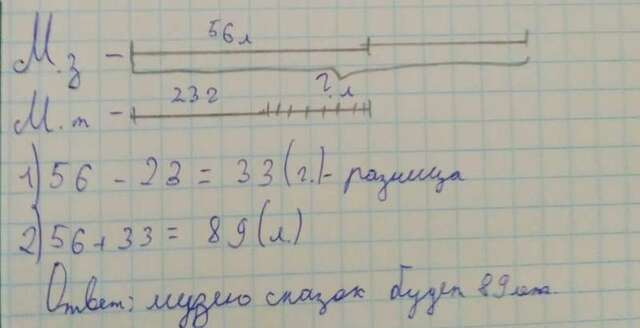 56 л
М.з -
? л
23 г
М.т -
1) 56 - 23 = 33 (г.) - разница
2) 56 + 33 = 89 (л.)
Ответ: музею сказок будет 89 лет.